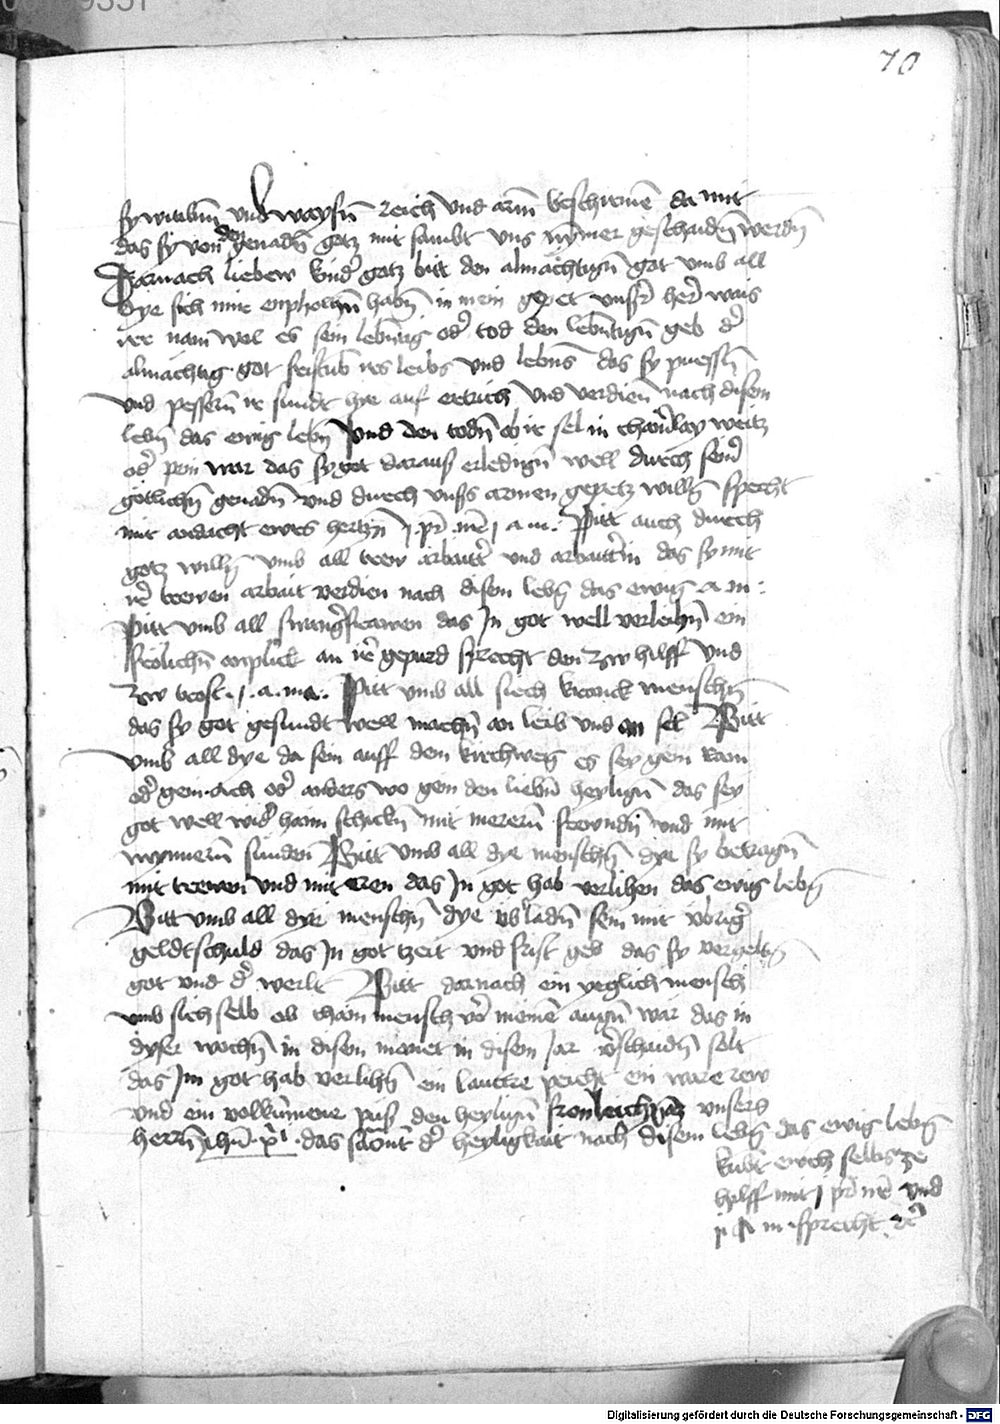 70
sy wittibn̄ und waysn̄ reich und arm beschirmē da mit
das sy von den genadn̄ gotz mit sambt uns nymer geschaidn̄ werdn̄
Darnach liebew kinđ gotz bitt den almachtign̄ got umb all
dye sich mir enpholhn̄ habn̄ in mein gepet unsr̄ her̄ wais
ire nam wol es sein lebntig oder tod den lebntign̄ geb der
almachtig got fristūb irs leibs und lebns das sy puessn̄
und pessern̄ ir sundt hye auf ertrich und verdien̄ nach disem
lebn̄ das ewig lebn̄ Und den todn̄ ob ir sel in chainerlay weitz
oder pein war das sy got daraus erledign̄ well durch seinr̄
gotlichn̄ genadn̄ und durch unss armen gepetz willn̄ sprecht
mit andacht ewrs hertzn̄ j pr̄ nr̄ j a m. Pitt auch durch
gotz willn̄ umb all trew arbaittr̄ und arbaittrin das sy mit
ir trewen arbait verdien nach disem lebn̄ das ewig a m :
Pitt umb all swangr̄ frawen das In got well verleihn̄ ein
frolichn̄ anplick an irr̄ gepurd sprecht den zw hilff und
zw trost . j . a . ma . Pitt umb all siech kranck menschn̄
das sy got gesundt well machn̄ an leib und an sel Bitt
umb all dye da sein auff dem kirchweg es sey gem Ram
oder gem ach oder anders wo gem den liebn̄ heylign̄ das sey
got well wider haim schickn̄ mit merern̄ frewndn̄ und mit
mynnern̄ sunden Bitt umb all dye menschn̄ dye sy betragn̄
mit trewen und mit eren das In got hab verlihen das ewig lebn̄
Bitt umb all dye menschn̄ dye ubrladn̄ sein mit ubrigr̄
geldtschuld das In got tzeit und frist geb das sy vergeltn̄
got und der werlt Bitt darnach ein yeglich mensch
umb sich selb ob chain mensch vor̄ meinē augn̄ war das in
dyser wochn̄ in disem monet in disem Jar vr̄schaidn̄ solt
das Im got hab verlihn̄ ein lauttre peicht ein ware rew
und ein volkūmene pus den heylign̄ fronleichnā unsers
herrn̄ jhū xp̄i das sacmt der heyligkait nach disem lebn̄ das ewig lebn̄
selbs ze
hilff mit j pr̄ nr̄ und
j a m sprecht
Digitalisierung gefördert durch die Deutsche Forschungsgemeinschaft - DFG